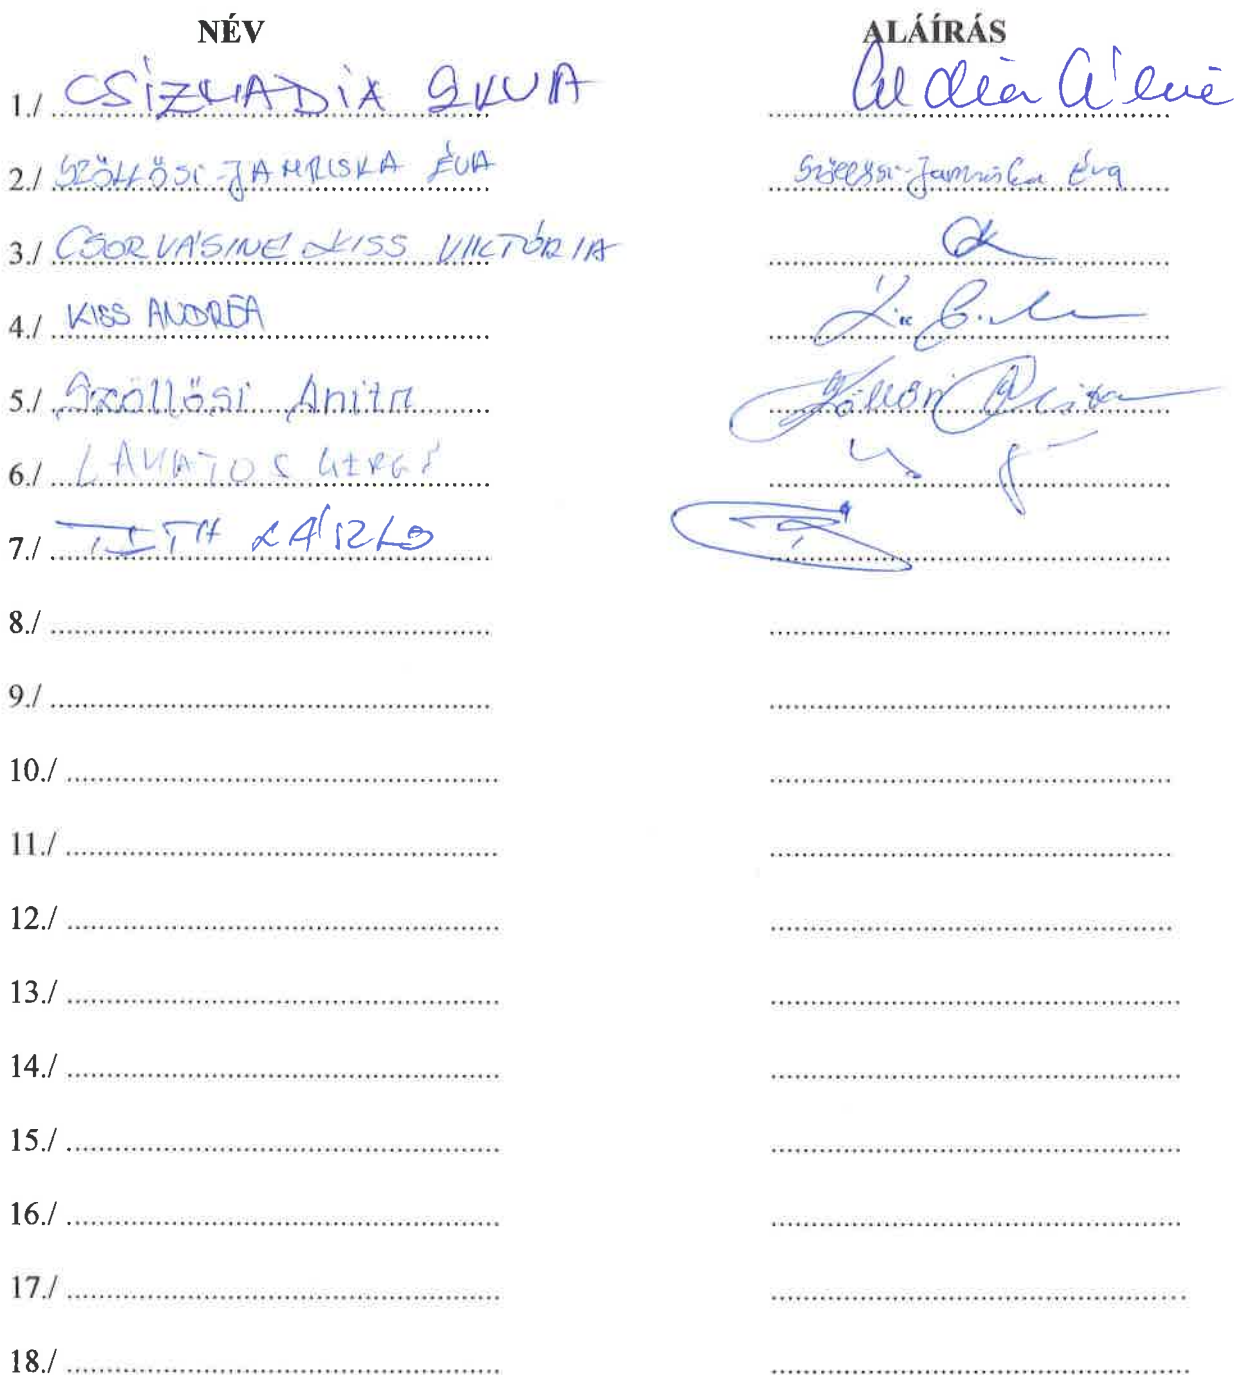 NÉV ALÁÍRÁS
1./ CSIZMADIA
2./ SZÖLLŐSI-JAMRISKA ÉVA Szöllősi-Jamriska Éva
3./ CSORVÁSINÉ KISS VIKTÓRIA
4./ KISS ANDREA
5./ Szöllősi Anita Szöllősi Anita
6./ LAKATOS
7./ TÓTH LÁSZLÓ
8./
9./
10./
11./
12./
13./
14./
15./
16./
17./
18./